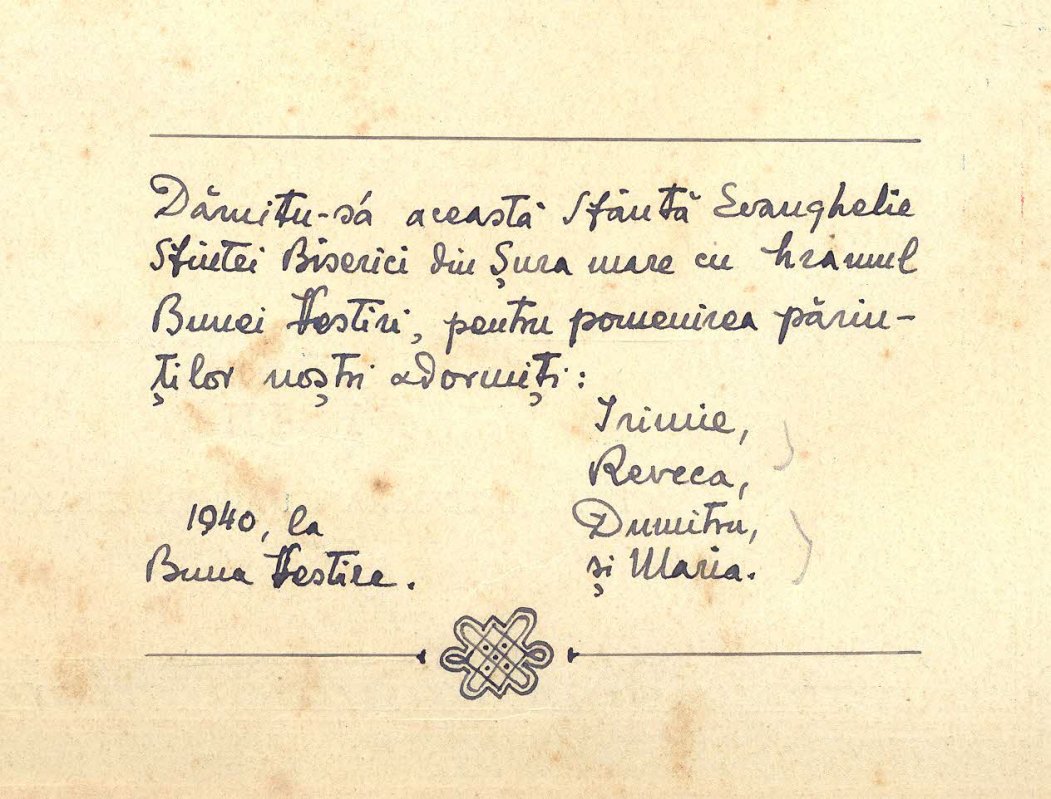 Dăruitu-să această Sfântă Evanghelie
Sfintei Biserici din Șura mare cu hramul
Bunei Vestiri, pentru pomenirea părin-
ților noștri adormiți:
Irimie,
Reveca,
1940, la Dumitru,
Buna Vestire. și Maria.